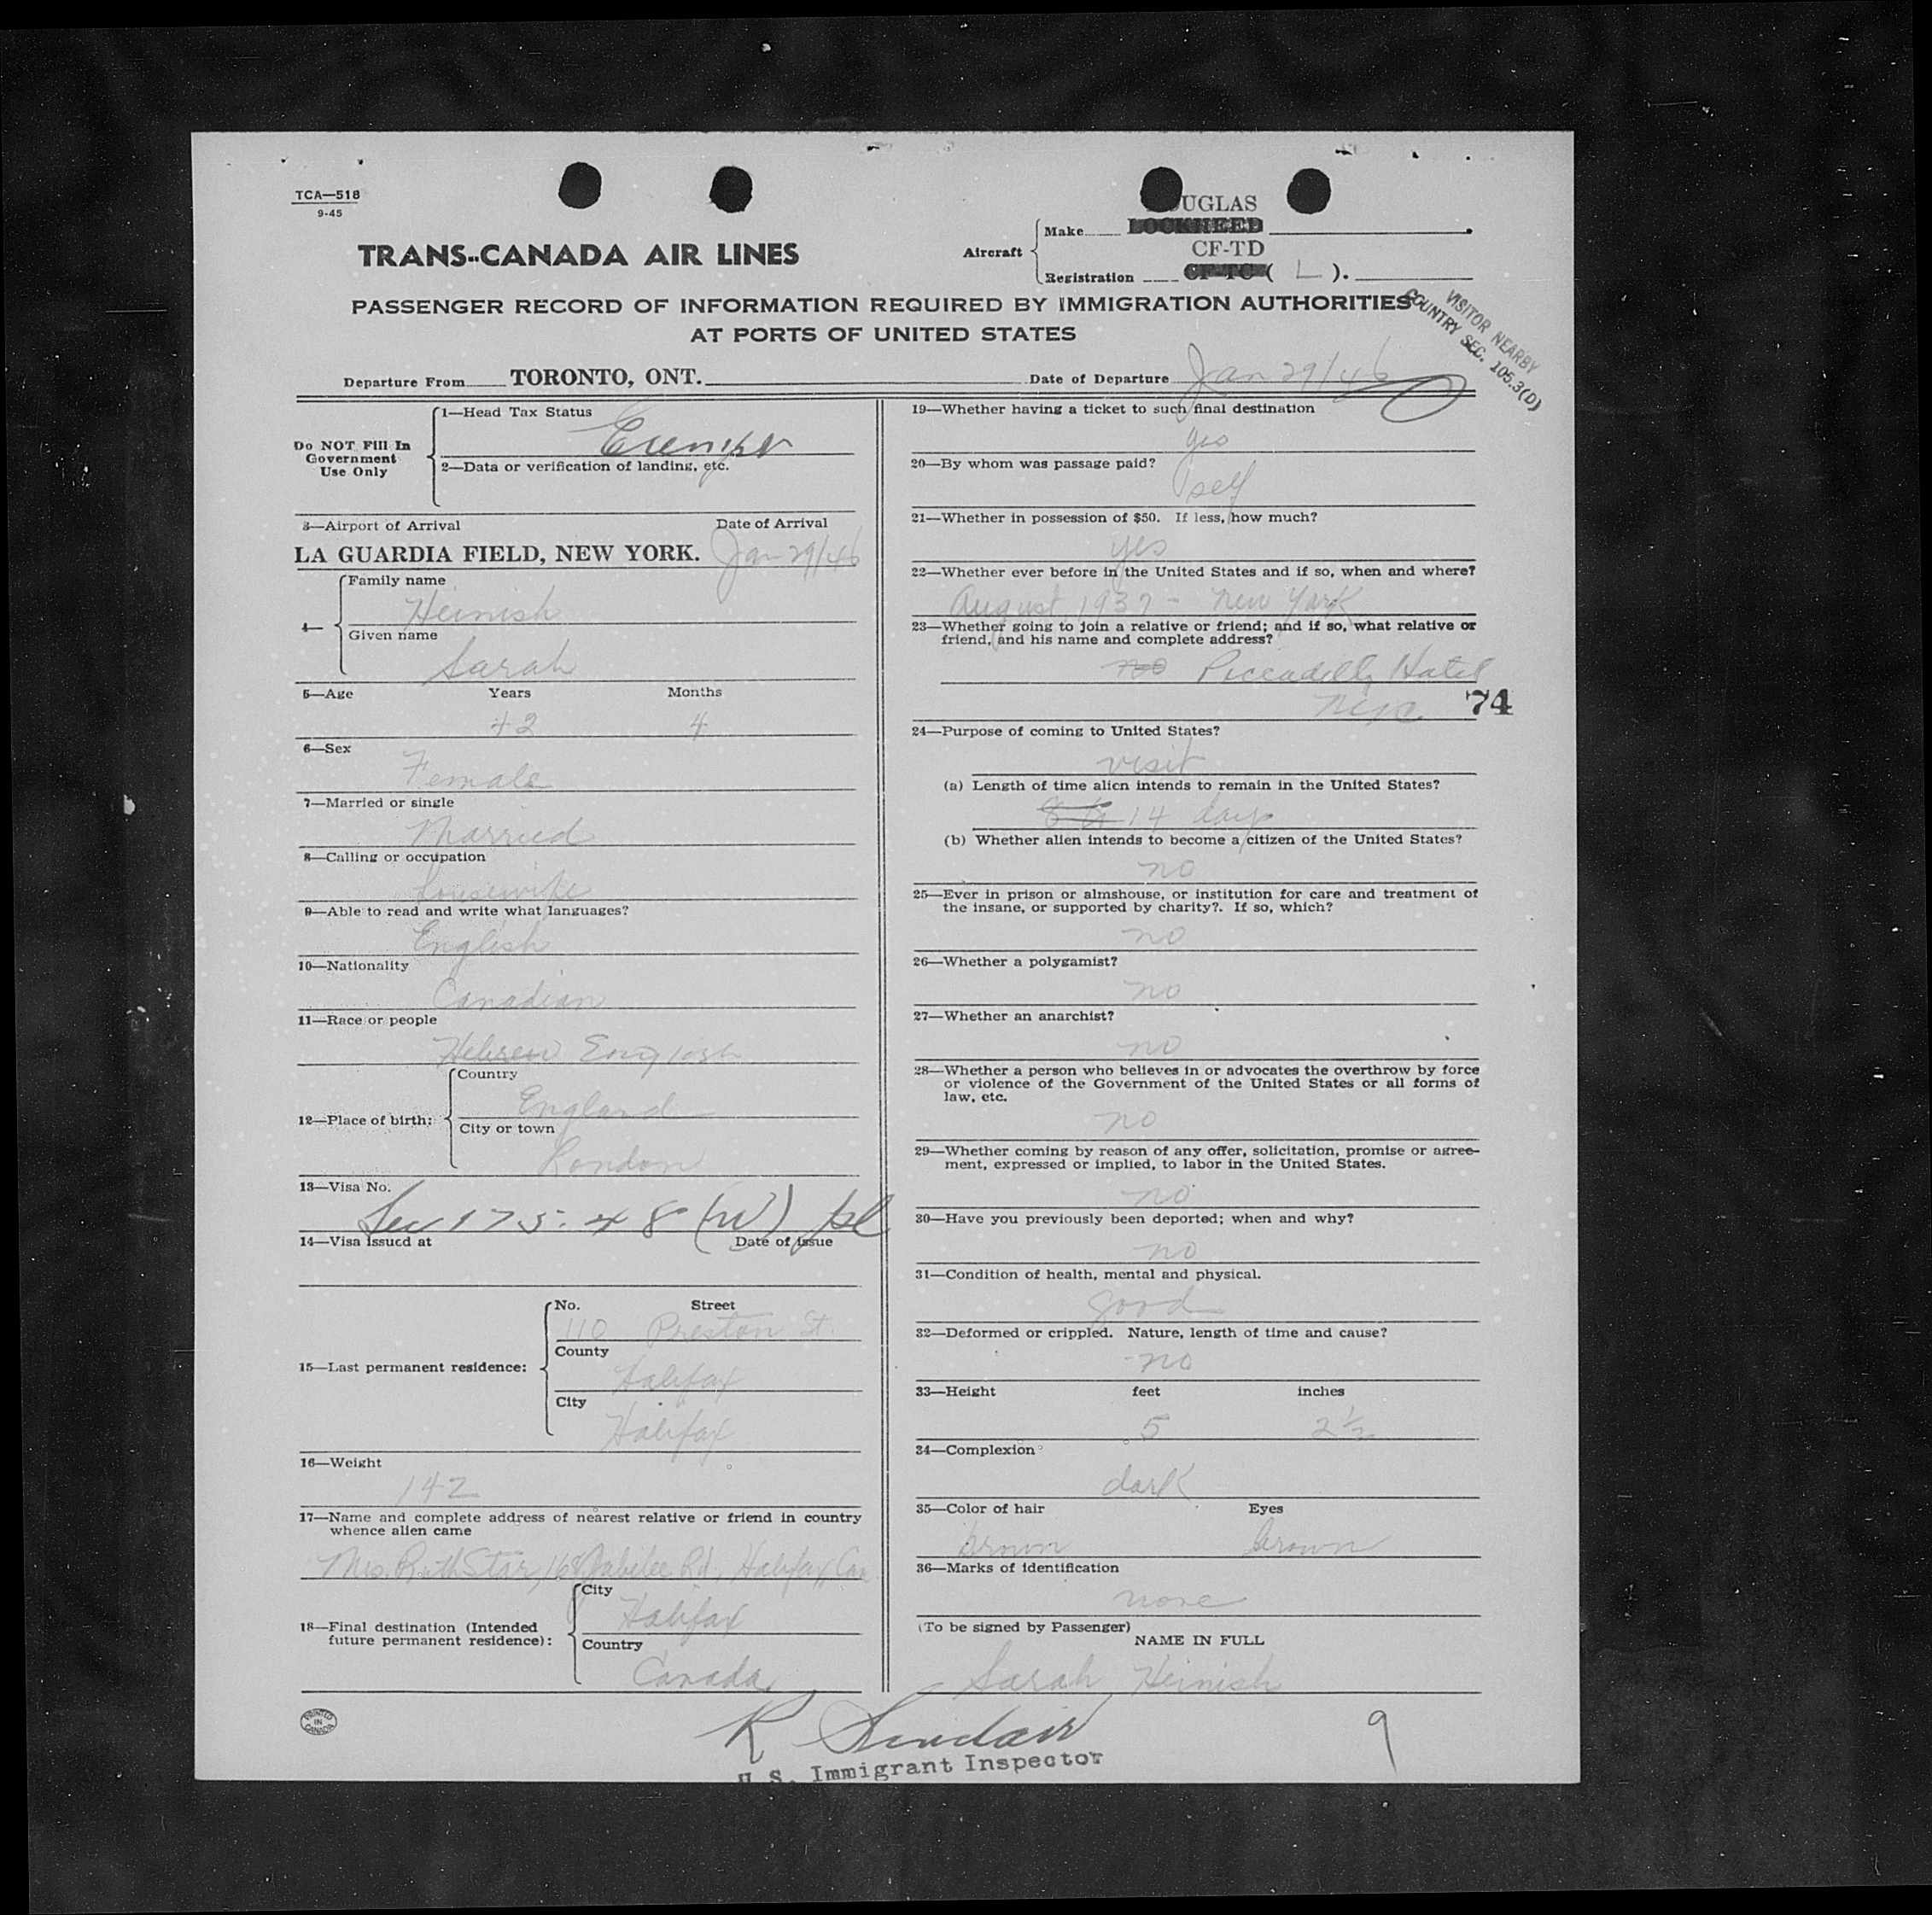 TCA—518
9-45
UGLAS
Make LOCKHEED
TRANS-CANADA AIR LINES
Aircraft
CF-TD
Registration CF-TC ( L ).
PASSENGER RECORD OF INFORMATION REQUIRED BY IMMIGRATION AUTHORITIES
AT PORTS OF UNITED STATES
VISITOR NEARBY
COUNTRY SEC. 105.3(D)
Departure From TORONTO, ONT. Date of Departure Jan 29/46
Do NOT Fill In
Government
Use Only
1—Head Tax Status
Exempt
2—Data or verification of landing, etc.
3—Airport of Arrival Date of Arrival
LA GUARDIA FIELD, NEW YORK. Jan 29/46
4—
Family name
Heinish
Given name
Sarah
5—Age Years Months
42 4
6—Sex
Female
7—Married or single
Married
8—Calling or occupation
housewife
9—Able to read and write what languages?
English
10—Nationality
Canadian
11—Race or people
Hebrew English
12—Place of birth:
Country
England
City or town
London
13—Visa No.
Sec 175.48 (W)
14—Visa issued at Date of issue
15—Last permanent residence:
No. Street
110 Preston St.
County
Halifax
City
Halifax
16—Weight
142
17—Name and complete address of nearest relative or friend in country
whence alien came
Mrs. Ruth Star, 168 Jubilee Rd., Halifax, Can
18—Final destination (Intended
future permanent residence):
City
Halifax
Country
Canada
19—Whether having a ticket to such final destination
yes
20—By whom was passage paid?
self
21—Whether in possession of $50. If less, how much?
yes
22—Whether ever before in the United States and if so, when and where?
August 1937 - New York
23—Whether going to join a relative or friend; and if so, what relative or
friend, and his name and complete address?
no Piccadilly Hotel
74
24—Purpose of coming to United States?
visit
(a) Length of time alien intends to remain in the United States?
14 days
(b) Whether alien intends to become a citizen of the United States?
no
25—Ever in prison or almshouse, or institution for care and treatment of
the insane, or supported by charity?. If so, which?
no
26—Whether a polygamist?
no
27—Whether an anarchist?
no
28—Whether a person who believes in or advocates the overthrow by force
or violence of the Government of the United States or all forms of
law, etc.
no
29—Whether coming by reason of any offer, solicitation, promise or agree-
ment, expressed or implied, to labor in the United States.
no
30—Have you previously been deported; when and why?
no
31—Condition of health, mental and physical.
good
32—Deformed or crippled. Nature, length of time and cause?
no
33—Height feet inches
5 2½
34—Complexion
dark
35—Color of hair Eyes
brown brown
36—Marks of identification
none
(To be signed by Passenger)
NAME IN FULL
Sarah Heinish
PRINTED
IN
CANADA
R Sinclair
U.S. Immigrant Inspector
9